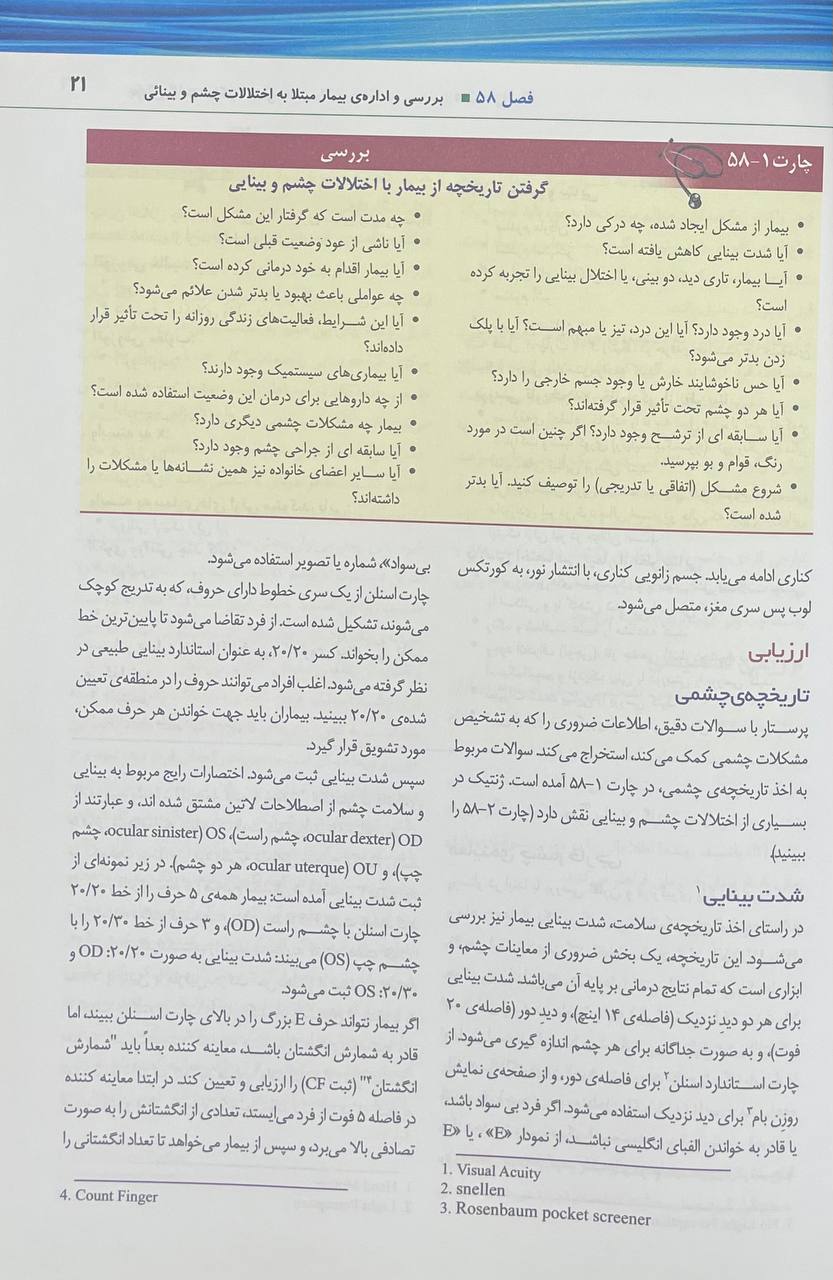 فصل ۵۸ ■ بررسی و اداره‌ی بیمار مبتلا به اختلالات چشم و بینائی
۲۱
چارت ۱-۵۸
بررسی
گرفتن تاریخچه از بیمار با اختلالات چشم و بینایی
• بیمار از مشکل ایجاد شده، چه درکی دارد؟
• آیا شدت بینایی کاهش یافته است؟
• آیا بیمار، تاری دید، دو بینی، یا اختلال بینایی را تجربه کرده
است؟
• آیا درد وجود دارد؟ آیا این درد، تیز یا مبهم است؟ آیا با پلک
زدن بدتر می‌شود؟
• آیا حس ناخوشایند خارش یا وجود جسم خارجی را دارد؟
• آیا هر دو چشم تحت تأثیر قرار گرفته‌اند؟
• آیا سابقه ای از ترشح وجود دارد؟ اگر چنین است در مورد
رنگ، قوام و بو بپرسید.
• شروع مشکل (اتفاقی یا تدریجی) را توصیف کنید. آیا بدتر
شده است؟
• چه مدت است که گرفتار این مشکل است؟
• آیا ناشی از عود وضعیت قبلی است؟
• آیا بیمار اقدام به خود درمانی کرده است؟
• چه عواملی باعث بهبود یا بدتر شدن علائم می‌شود؟
• آیا این شرایط، فعالیت‌های زندگی روزانه را تحت تأثیر قرار
داده‌اند؟
• آیا بیماری‌های سیستمیک وجود دارند؟
• از چه داروهایی برای درمان این وضعیت استفاده شده است؟
• بیمار چه مشکلات چشمی دیگری دارد؟
• آیا سابقه ای از جراحی چشم وجود دارد؟
• آیا سایر اعضای خانواده نیز همین نشانه‌ها یا مشکلات را
داشته‌اند؟
کناری ادامه می‌یابد. جسم زانویی کناری، با انتشار نور، به کورتکس
لوب پس سری مغز، متصل می‌شود.
ارزیابی
تاریخچه‌ی چشمی
پرستار با سوالات دقیق، اطلاعات ضروری را که به تشخیص
مشکلات چشمی کمک می‌کند، استخراج می‌کند. سوالات مربوط
به اخذ تاریخچه‌ی چشمی، در چارت ۱-۵۸ آمده است. ژنتیک در
بسیاری از اختلالات چشم و بینایی نقش دارد (چارت ۲-۵۸ را
ببینید).
شدت بینایی۱
در راستای اخذ تاریخچه‌ی سلامت، شدت بینایی بیمار نیز بررسی
می‌شود. این تاریخچه، یک بخش ضروری از معاینات چشم، و
ابزاری است که تمام نتایج درمانی بر پایه آن می‌باشد. شدت بینایی
برای هر دو دیدِ نزدیک (فاصله‌ی ۱۴ اینچ)، و دیدِ دور (فاصله‌ی ۲۰
فوت)، و به صورت جداگانه برای هر چشم اندازه گیری می‌شود. از
چارت استاندارد اسنلن۲ برای فاصله‌ی دور، و از صفحه‌ی نمایش
روزن بام۳ برای دید نزدیک استفاده می‌شود. اگر فرد بی سواد باشد،
یا قادر به خواندن الفبای انگلیسی نباشد، از نمودار «E»، یا «E
1. Visual Acuity
2. snellen
3. Rosenbaum pocket screener
بی‌سواد»، شماره یا تصویر استفاده می‌شود.
چارت اسنلن از یک سری خطوط دارای حروف، که به تدریج کوچک
می‌شوند، تشکیل شده است. از فرد تقاضا می‌شود تا پایین‌ترین خط
ممکن را بخواند. کسر ۲۰/۲۰، به عنوان استاندارد بینایی طبیعی در
نظر گرفته می‌شود. اغلب افراد می‌توانند حروف را در منطقه‌ی تعیین
شده‌ی ۲۰/۲۰ ببینید. بیماران باید جهت خواندن هر حرف ممکن،
مورد تشویق قرار گیرد.
سپس شدت بینایی ثبت می‌شود. اختصارات رایج مربوط به بینایی
و سلامت چشم از اصطلاحات لاتین مشتق شده اند، و عبارتند از
OD (ocular dexter، چشم راست)، OS (ocular sinister، چشم
چپ)، و OU (ocular uterque، هر دو چشم). در زیر نمونه‌ای از
ثبت شدت بینایی آمده است: بیمار همه‌ی ۵ حرف را از خط ۲۰/۲۰
چارت اسنلن با چشم راست (OD)، و ۳ حرف از خط ۲۰/۳۰ را با
چشم چپ (OS) می‌بیند: شدت بینایی به صورت OD :۲۰/۲۰ و
OS :۲۰/۳۰ ثبت می‌شود.
اگر بیمار نتواند حرف E بزرگ را در بالای چارت اسنلن ببیند، اما
قادر به شمارش انگشتان باشد، معاینه کننده بعداً باید "شمارش
انگشتان۴" (ثبت CF) را ارزیابی و تعیین کند. در ابتدا معاینه کننده
در فاصله ۵ فوت از فرد می‌ایستد، تعدادی از انگشتانش را به صورت
تصادفی بالا می‌برد، و سپس از بیمار می‌خواهد تا تعداد انگشتانی را
4. Count Finger